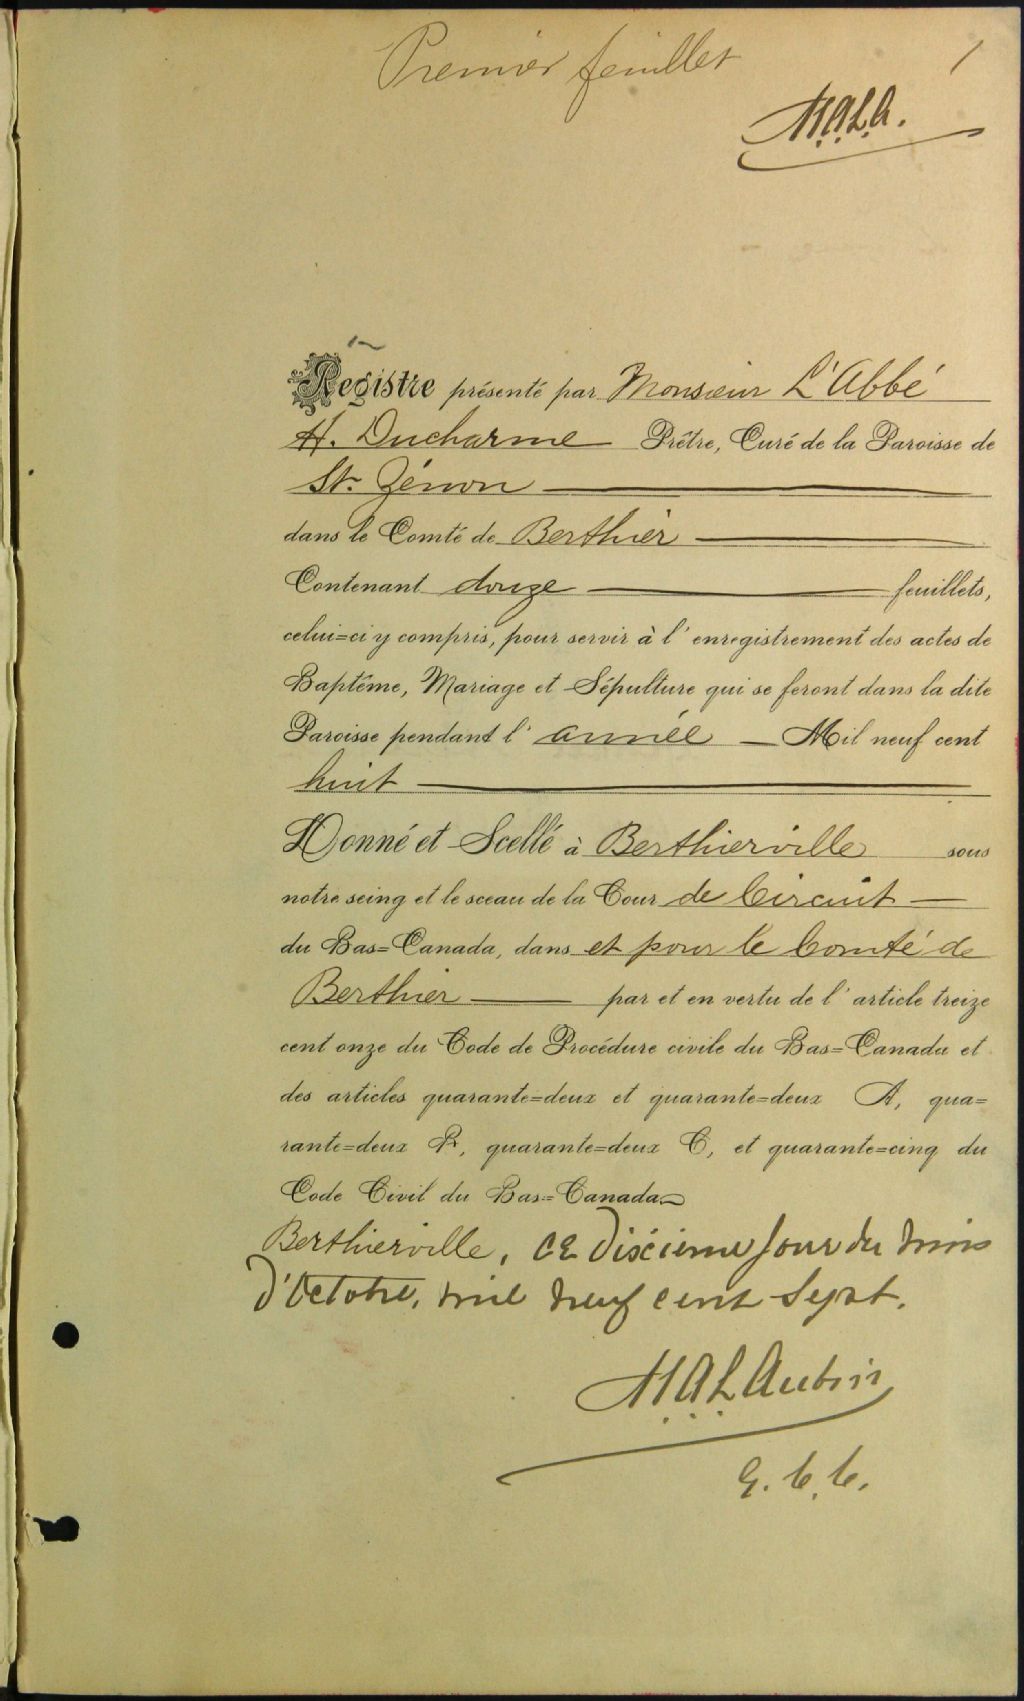 Premier feuillet 1
H.A.L.A.
Registre présenté par Monsieur L'Abbé
H. Ducharme Prêtre, Curé de la Paroisse de
St. Zénon
dans le Comté de Berthier
Contenant douze feuillets,
celui=ci y compris, pour servir à l'enregistrement des actes de
Baptême, Mariage et Sépulture qui se feront dans la dite
Paroisse pendant l'année Mil neuf cent
huit
Donné et Scellé à Berthierville sous
notre seing et le sceau de la Cour de Circuit
du Bas=Canada, dans et pour le Comté de
Berthier par et en vertu de l'article treize
cent onze du Code de Procédure civile du Bas=Canada et
des articles quarante=deux et quarante=deux A, qua=
rante=deux B, quarante=deux C, et quarante=cinq du
Code Civil du Bas=Canada
Berthierville, ce dixième jour du mois
d'Octobre, mil neuf cent sept.
H.A.L. Aubin
G.C.C.